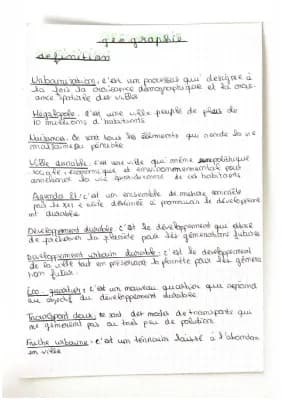 géographie
définition
Urbanisation : c'est un processus qui désigne à
la fois la croissance démographique et la crois-
ance spatiale des villes
Megalopole : c'est une ville peuplé de plus de
10 millions d'habitants
Nuisance : Ce sont tous les éléments qui rende la vie
pénible
Ville durable : c'est une ville qui mène politique
sociale économique et environnementale pour
améliorer la vie de ses habitants
Agenda 21 : c'est un ensemble de mesure
pour le XXI e siècle destinée à promouvoir le développeme
nt durable
Développement durable : c'est le développement qui
de préserver la planète pour les générations futures
Développement urbain durable : c'est le développement
de la ville tout en préservant la planète pour les généra
tion futur
Eco quartier : c'est un nouveau quartier qui répond
au objectif du développement durable
Transport doux : ce sont des modes de transports qui
ne génèrent pas ou très peu de pollution
Friche urbaine : c'est un terrain laissé à l'abandon
en ville